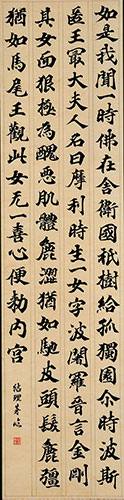 如是我聞一時佛在舍衛國祇樹給孤獨園尒時波斯
匿王冣大夫人名曰摩利時生一女字波闍羅晉言金剛
其女面狠極為醜惡肌體麁澀猶如駞皮頭髮麁彊
猶如馬尾王觀此女无一喜心便勑內宮